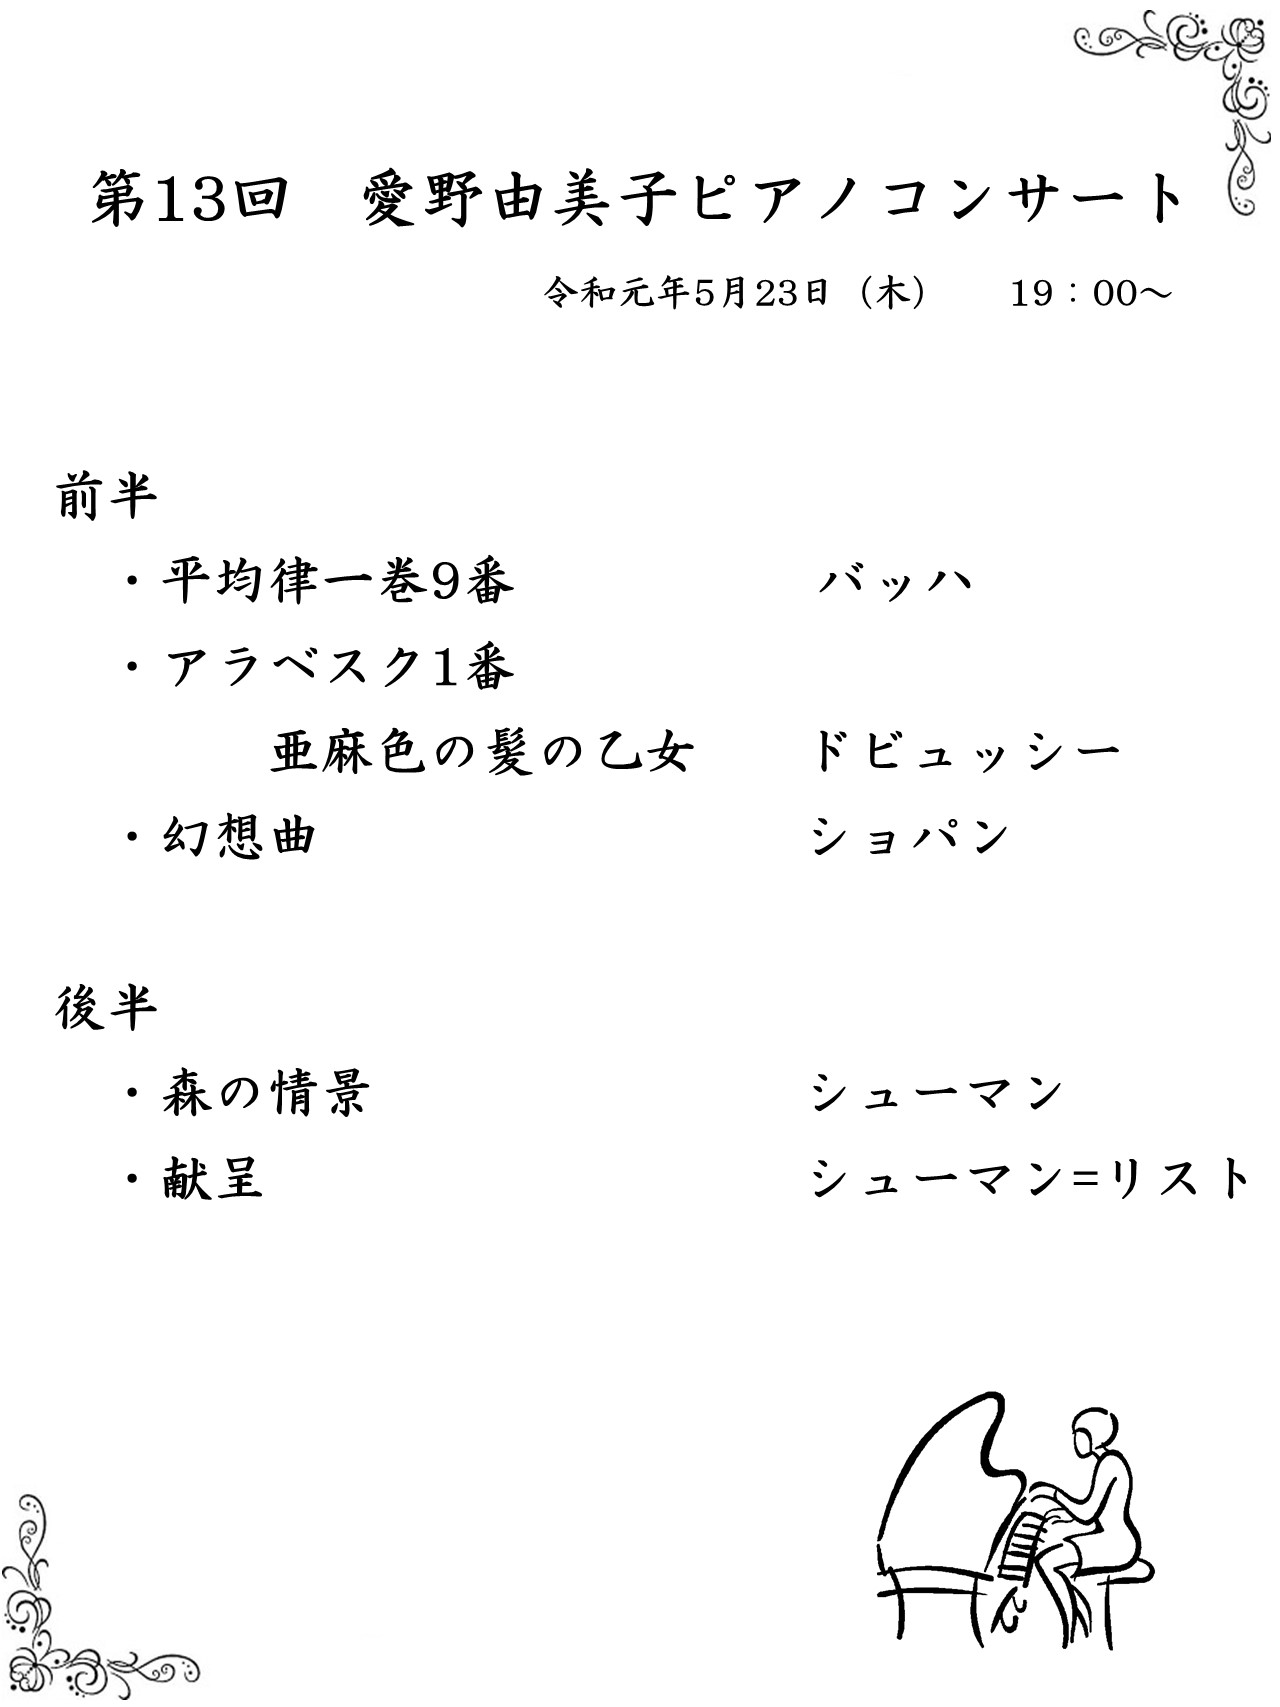 第13回　愛野由美子ピアノコンサート
令和元年5月23日（木）　19：00～
前半
・平均律一巻9番　バッハ
・アラベスク1番
亜麻色の髪の乙女　ドビュッシー
・幻想曲　ショパン
後半
・森の情景　シューマン
・献呈　シューマン=リスト